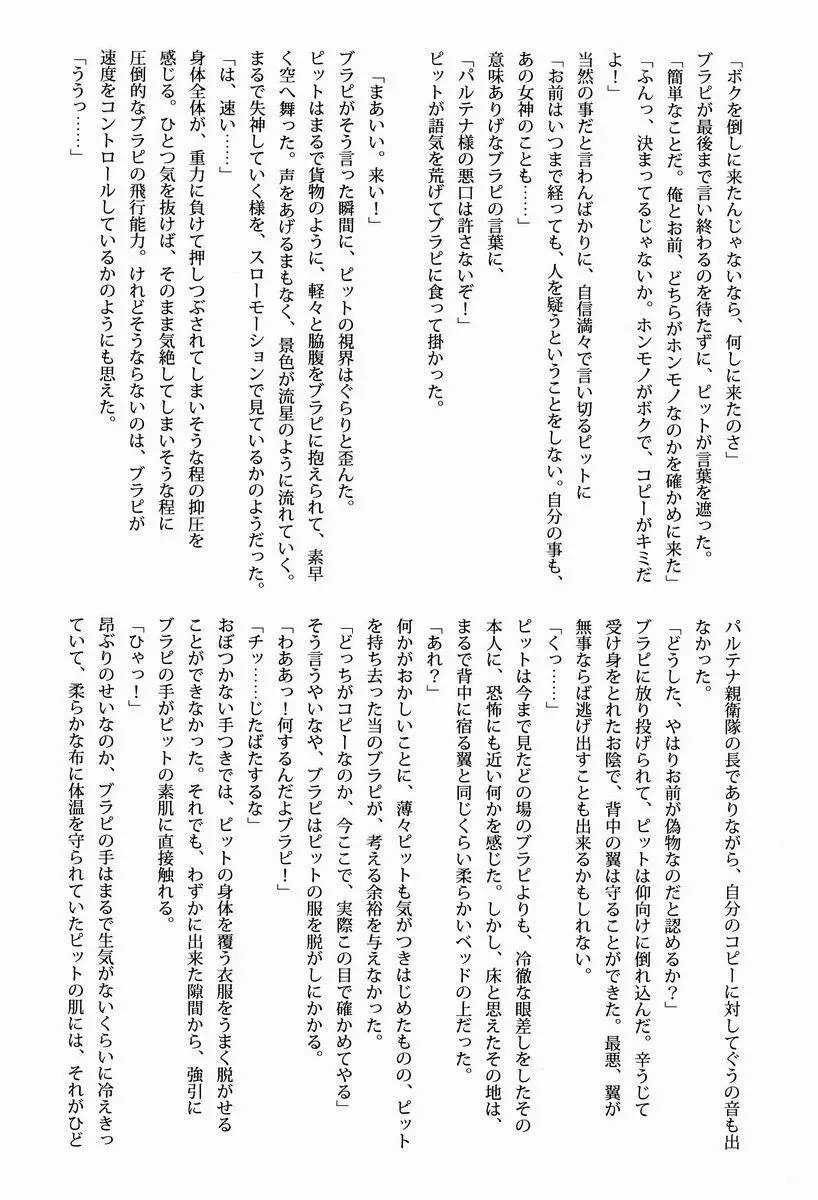 「ボクを倒しに来たんじゃないなら、何しに来たのさ」
ブラピが最後まで言い終わるのを待たずに、ピットが言葉を遮った。
「簡単なことだ。俺とお前、どちらがホンモノなのかを確かめに来た」
「ふんっ、決まってるじゃないか。ホンモノがボクで、コピーがキミだ
よ！」
当然の事だと言わんばかりに、自信満々で言い切るピットに
「お前はいつまで経っても、人を疑うということをしない。自分の事も、
あの女神のことも……」
意味ありげなブラピの言葉に、
「パルテナ様の悪口は許さないぞ！」
ピットが語気を荒げてブラピに食って掛かった。
「まあいい。来い！」
ブラピがそう言った瞬間に、ピットの視界はぐらりと歪んだ。
ピットはまるで貨物のように、軽々と脇腹をブラピに抱えられて、素早
く空へ舞った。声をあげるまもなく、景色が流星のように流れていく。
まるで失神していく様を、スローモーションで見ているかのようだった。
「は、速い……」
身体全体が、重力に負けて押しつぶされてしまいそうな程の抑圧を
感じる。ひとつ気を抜けば、そのまま気絶してしまいそうな程に
圧倒的なブラピの飛行能力。けれどそうならないのは、ブラピが
速度をコントロールしているかのようにも思えた。
「ううっ……」
パルテナ親衛隊の長でありながら、自分のコピーに対してぐうの音も出
なかった。
「どうした、やはりお前が偽物なのだと認めるか？」
ブラピに放り投げられて、ピットは仰向けに倒れ込んだ。辛うじて
受け身をとれたお陰で、背中の翼は守ることができた。最悪、翼が
無事ならば逃げ出すことも出来るかもしれない。
「くっ……」
ピットは今まで見たどの場のブラピよりも、冷徹な眼差しをしたその
本人に、恐怖にも近い何かを感じた。しかし、床と思えたその地は、
まるで背中に宿る翼と同じくらい柔らかいベッドの上だった。
「あれ？」
何かがおかしいことに、薄々ピットも気がつきはじめたものの、ピット
を持ち去った当のブラピが、考える余裕を与えなかった。
「どっちがコピーなのか、今ここで、実際この目で確かめてやる」
そう言うやいなや、ブラピはピットの服を脱がしにかかる。
「わああっ！何するんだよブラピ！」
「チッ……じたばたするな」
おぼつかない手つきでは、ピットの身体を覆う衣服をうまく脱がせる
ことができなかった。それでも、わずかに出来た隙間から、強引に
ブラピの手がピットの素肌に直接触れる。
「ひゃっ！」
昂ぶりのせいなのか、ブラピの手はまるで生気がないくらいに冷えきっ
ていて、柔らかな布に体温を守られていたピットの肌には、それがひど